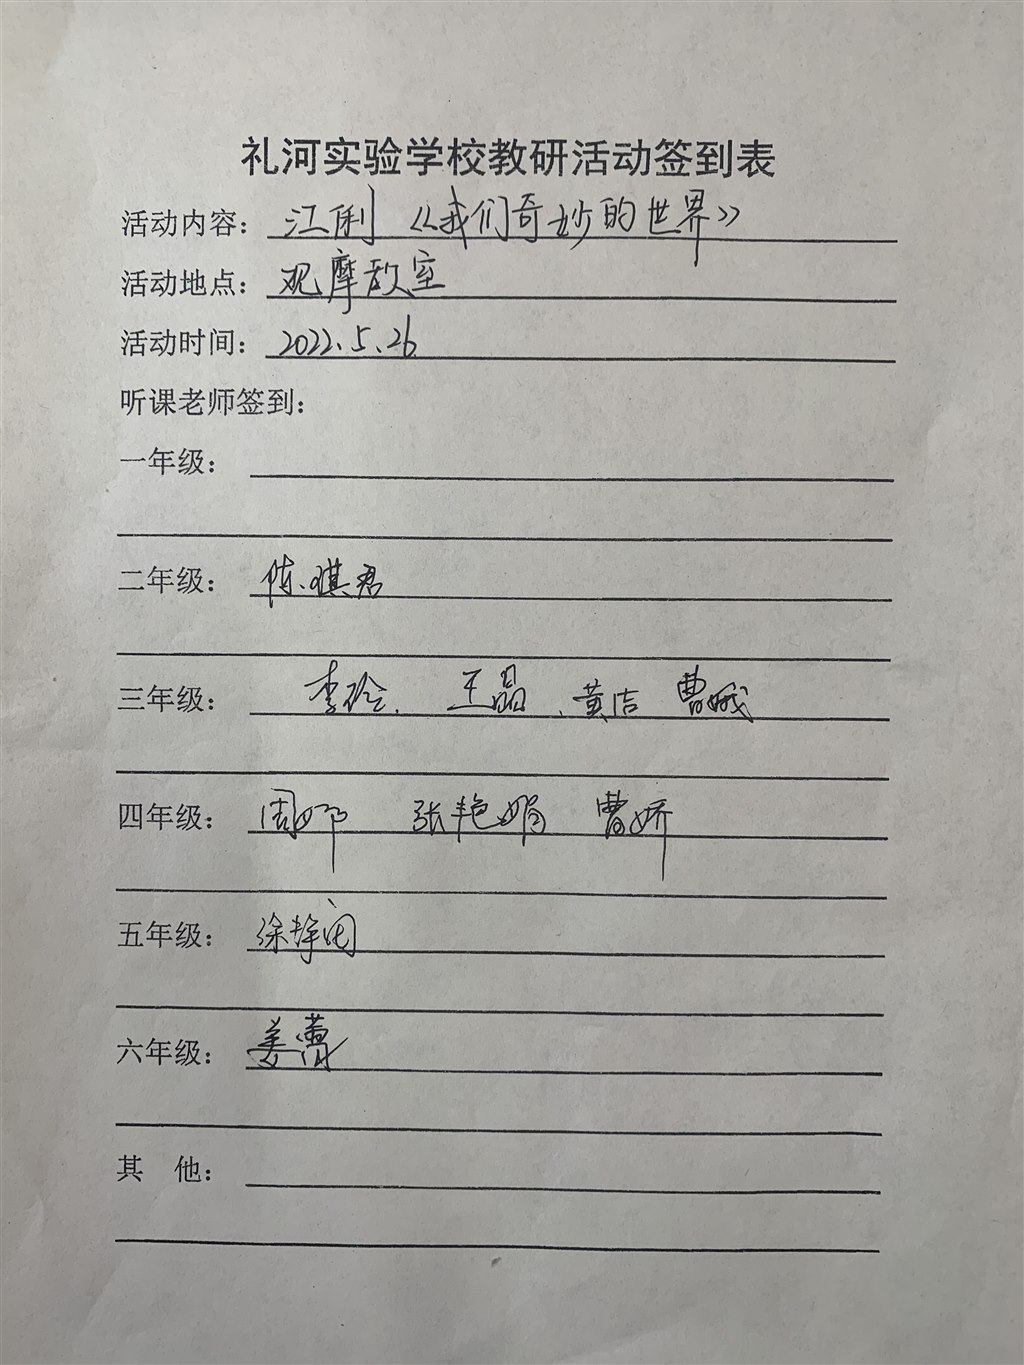 礼河实验学校教研活动签到表
活动内容: 江俐 《我们奇妙的世界》
活动地点: 观摩教室
活动时间: 2022.5.26
听课老师签到:
一年级:
二年级: 陈琪君
三年级: 李玲、 王晶、黄洁 曹娥
四年级: 周娜 张艳娟 曹娇
五年级: 徐静闵
六年级: 姜蕾
其 他: